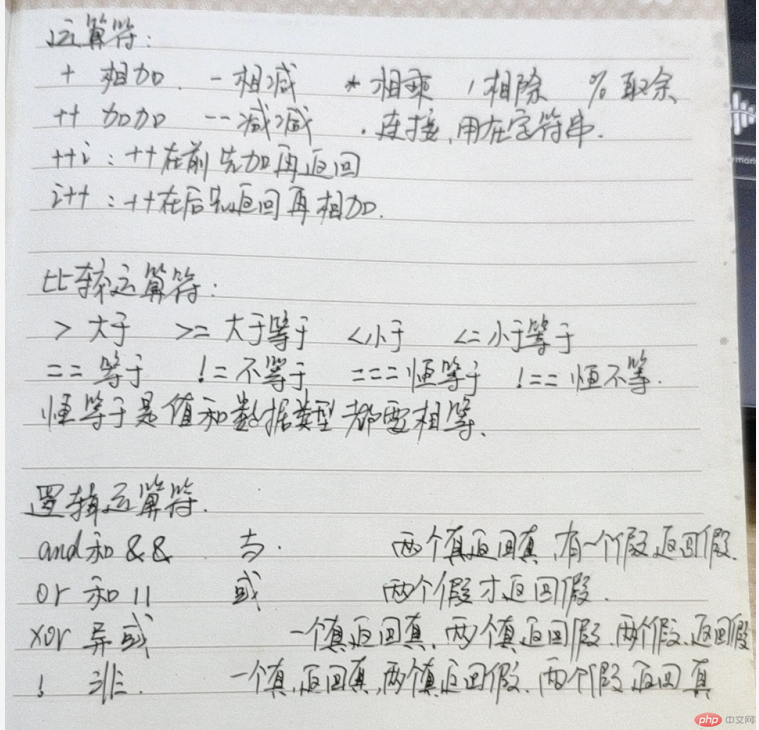 运算符:
+ 相加 - 相减 * 相乘 / 相除 % 取余
++ 加加 -- 减减 . 连接,用在字符串.
++i : ++在前先加再返回
i++ : ++在后先返回再相加.
比较运算符:
> 大于 >= 大于等于 <小于 <= 小于等于
== 等于 != 不等于 === 恒等于 !== 恒不等.
恒等于是值和数据类型都要相等.
逻辑运算符.
and和&& 与. 两个真返回真,有一个假返回假.
or 和 || 或 两个假才返回假.
xor 异或 一个真返回真,两个真返回假.两个假.返回假
! 非. 一个真,返回真,两个真返回假.两个假返回真
php 中文网